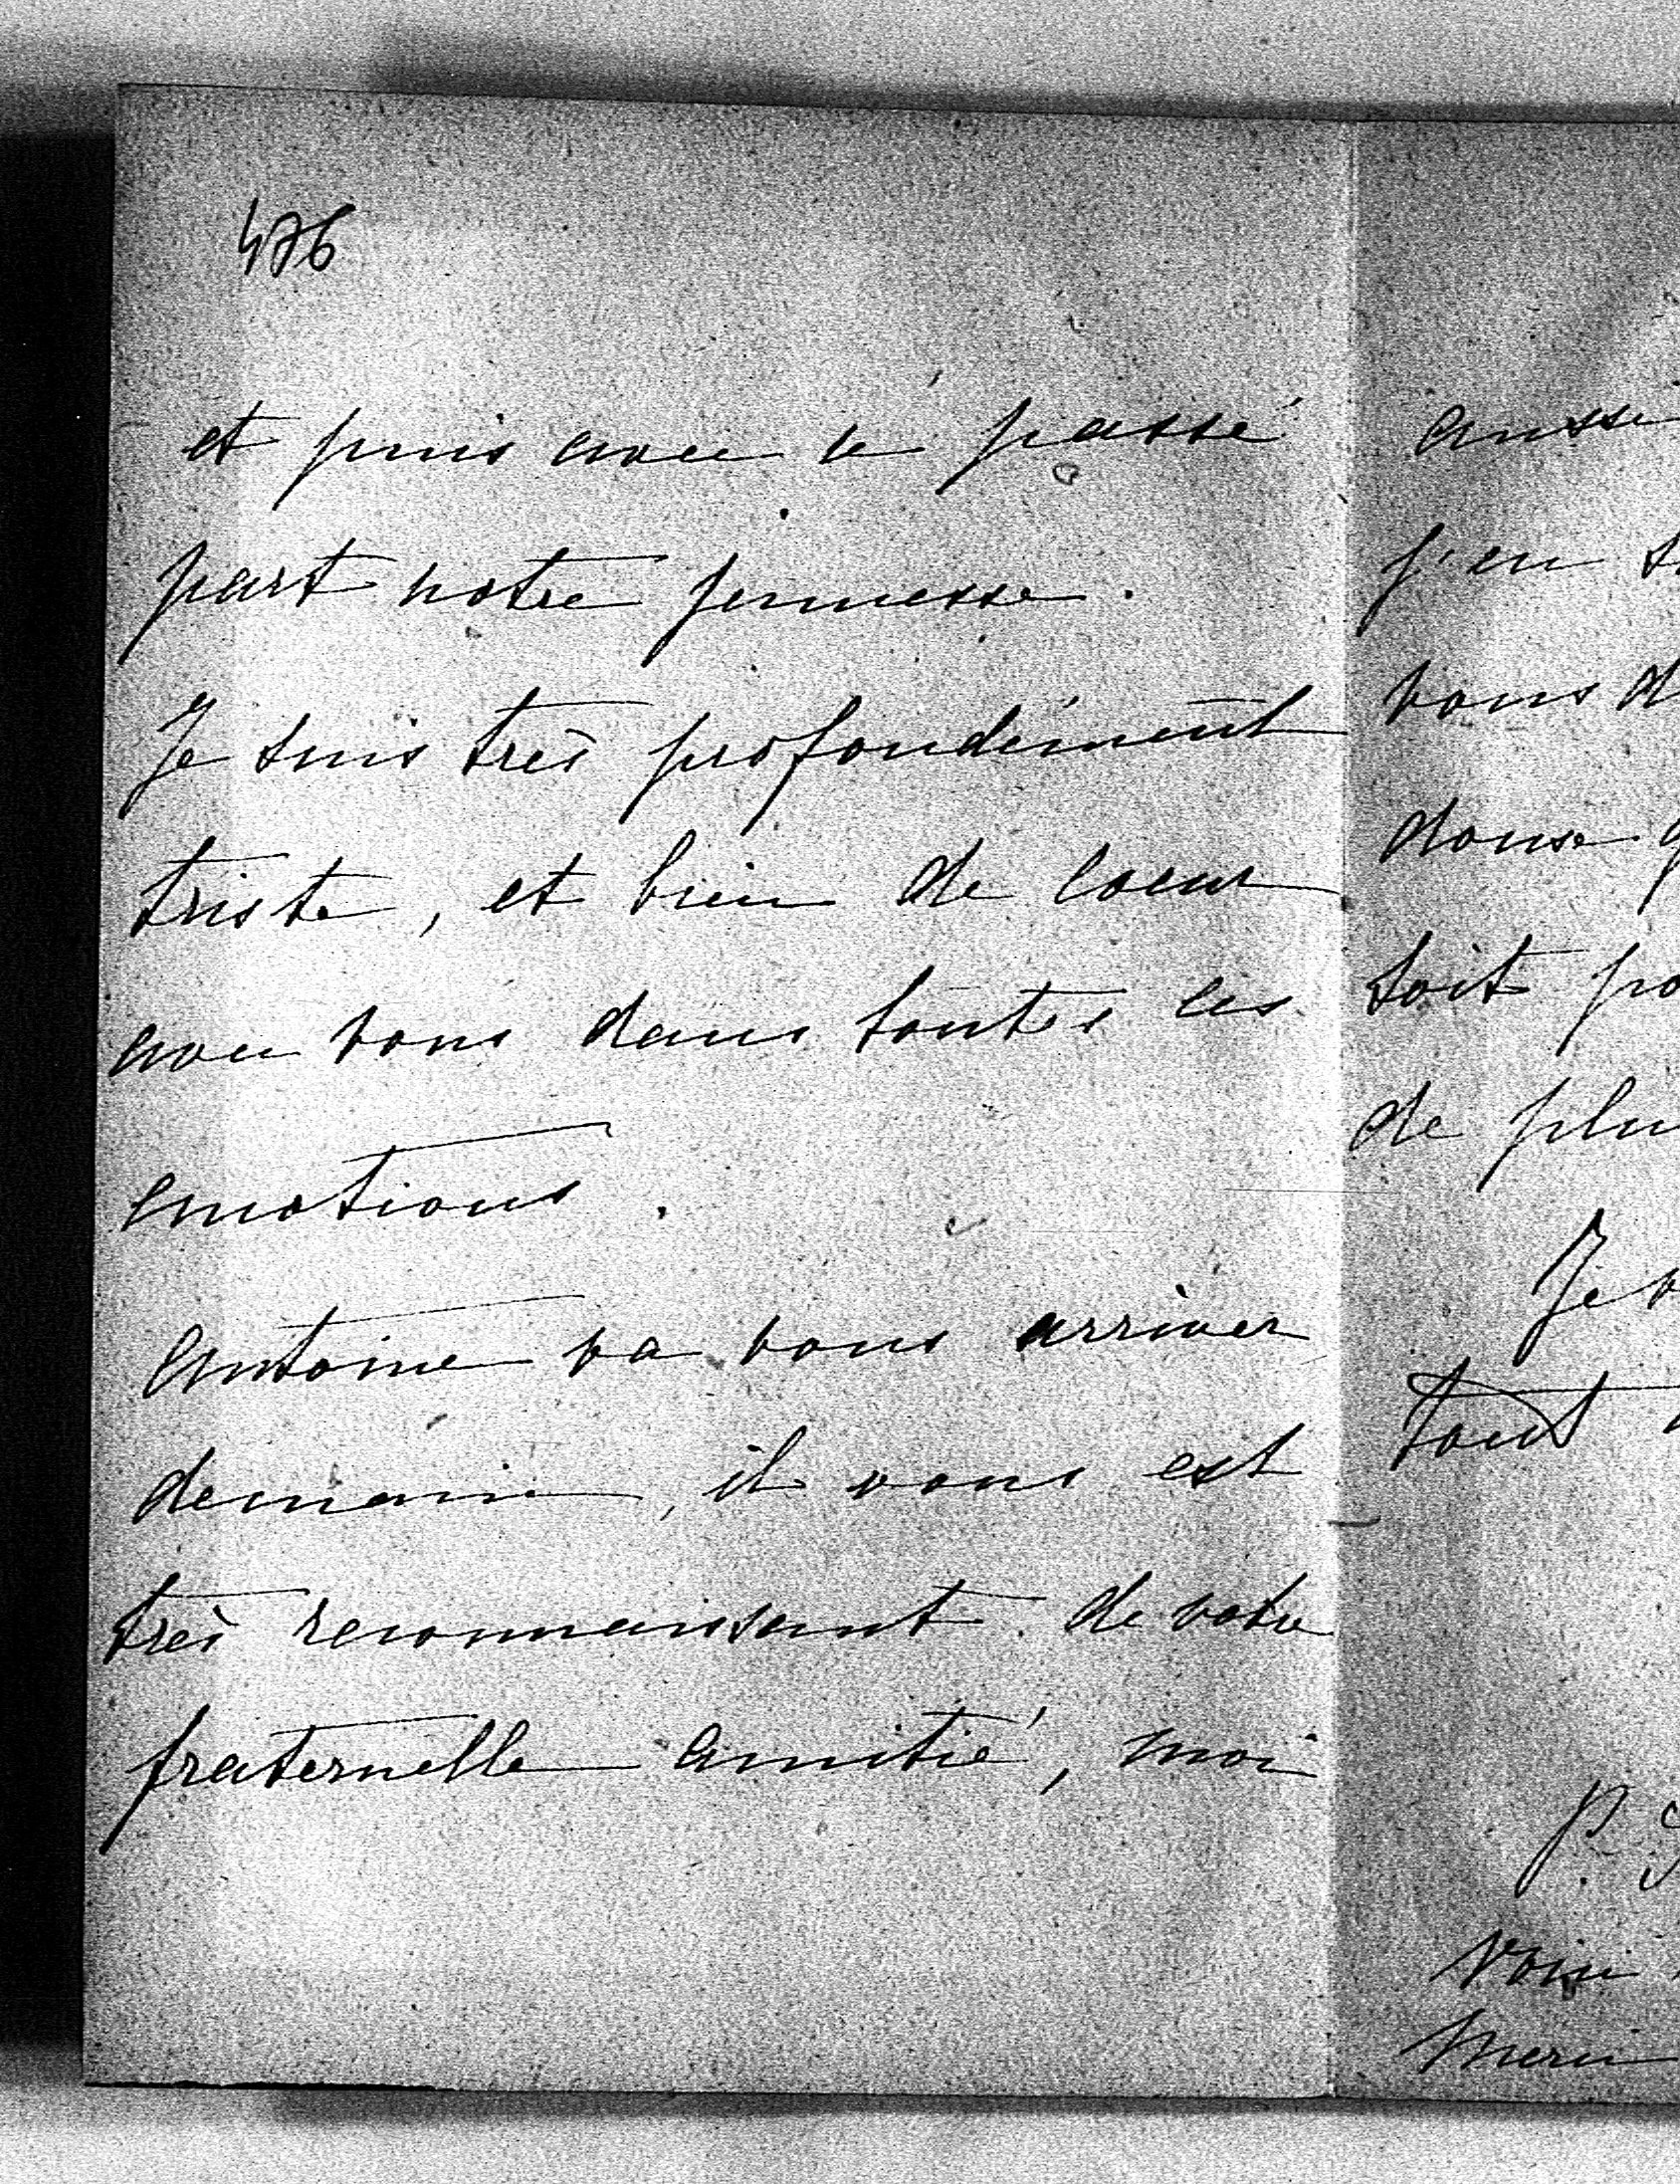 476
et puis avec ce passé
part notre jeunesse.
Je suis très profondément
triste, et bien de coeur
avec vous dans toutes ces
emotions.
Antoine va vous arriver
demain, il vous est
très reconnaissant de votre
fraternelle amitié, moi
aussi
j'en
vous d
douse
soit po
de plu
Je v
tout
P. S
Voici
Merci